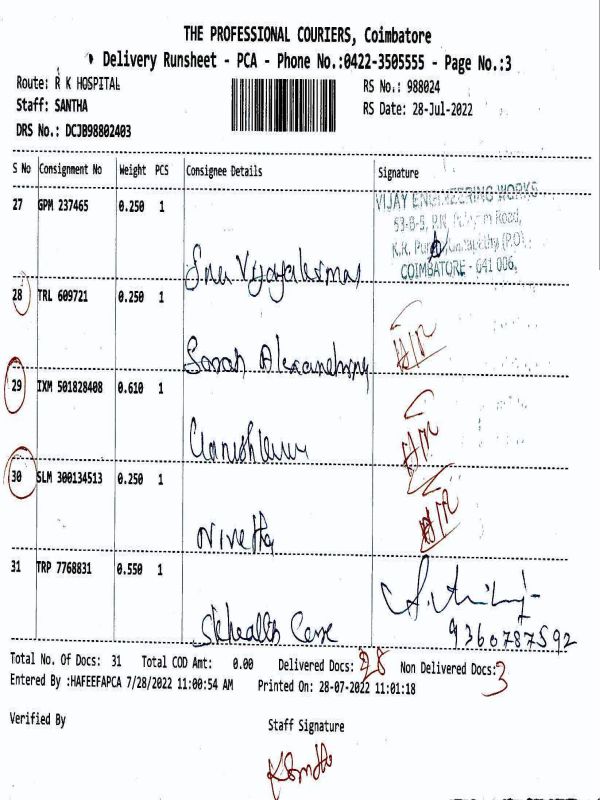 THE PROFESSIONAL COURIERS, Coimbatore
Delivery Runsheet - PCA - Phone No.:0422-3505555 - Page No.:3
Route: R K HOSPITAL RS No.: 988024
Staff: SANTHA RS Date: 28-Jul-2022
DRS No.: DCJB98802403
S No Consignment No Weight PCS Consignee Details Signature
27 GPM 237465 0.250 1
VIJAY ENGINEERING WORKS
53-B-5, P.N. Road,
K.R. (P.O)
COIMBATORE - 641 006.
28 TRL 609721 0.250 1
Sarah
29 IXM 501828408 0.610 1
30 SLM 300134513 0.250 1
Nivetha
31 TRP 7768831 0.550 1
Skhealth Care
9360787592
Total No. Of Docs: 31 Total COD Amt: 0.00 Delivered Docs: 28 Non Delivered Docs: 3
Entered By :HAFEEFAPCA 7/28/2022 11:00:54 AM Printed On: 28-07-2022 11:01:18
Verified By Staff Signature